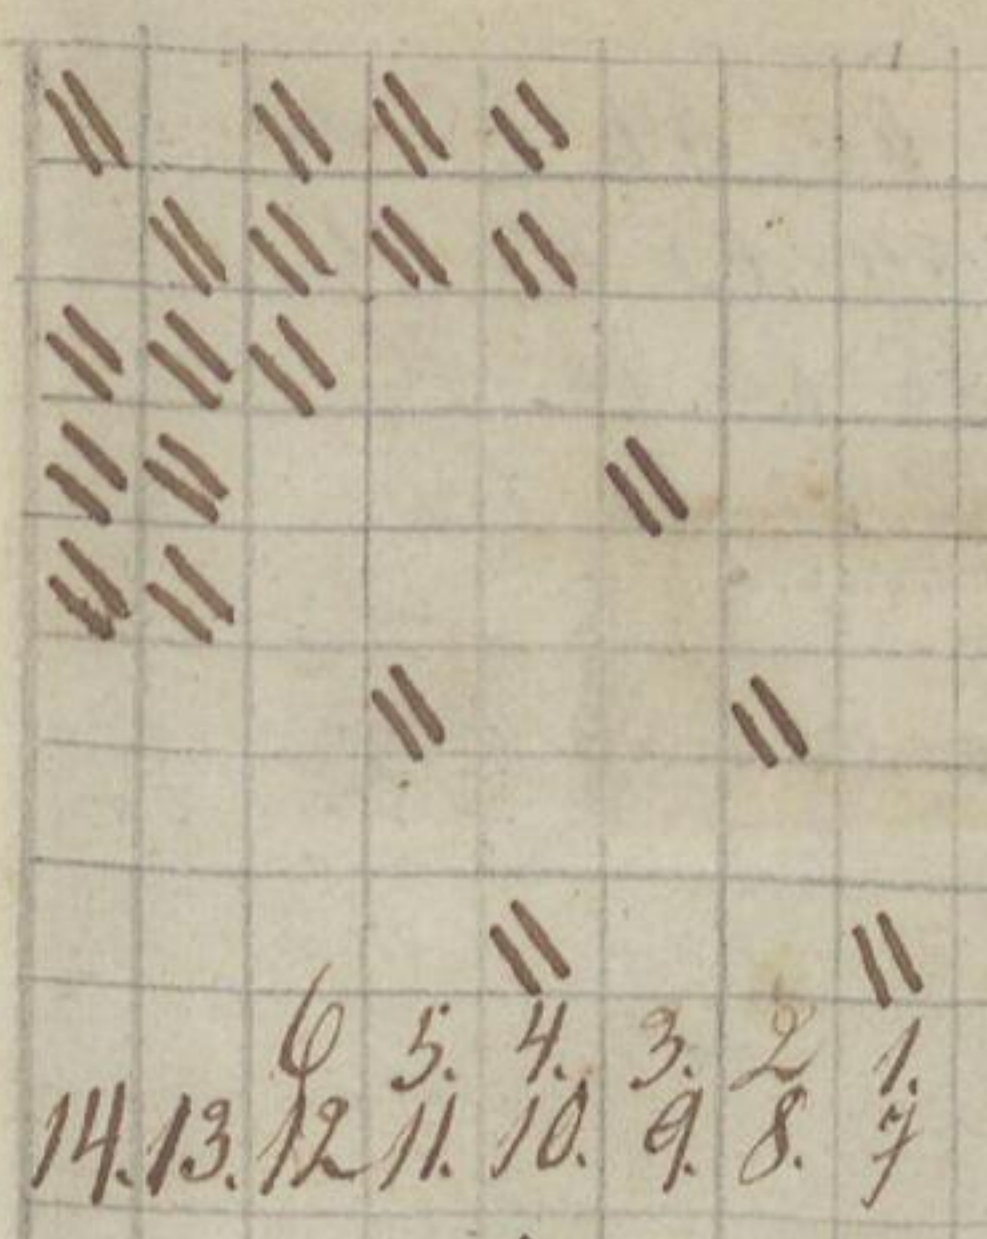 6 5. 4. 3. 2 1.
14. 13. 12 11. 10. 9. 8. 7